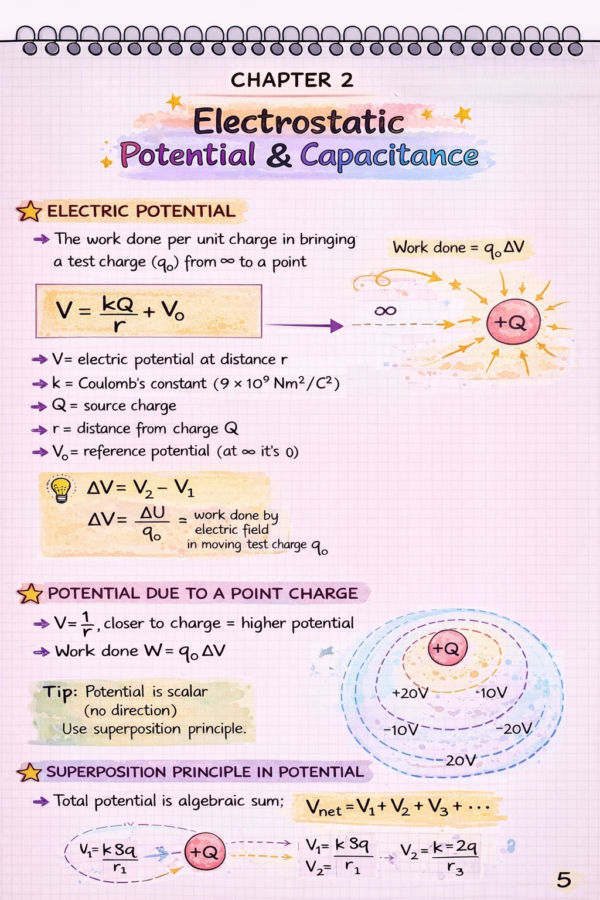 CHAPTER 2
Electrostatic
Potential & Capacitance
ELECTRIC POTENTIAL
→ The work done per unit charge in bringing
a test charge (q₀) from ∞ to a point
Work done = q₀ΔV
V = kQ/r + V₀
∞
+Q
→ V= electric potential at distance r
→ k = Coulomb's constant (9 × 10⁹ Nm²/C²)
→ Q = source charge
→ r = distance from charge Q
→ V₀= reference potential (at ∞ it's 0)
ΔV= V₂ − V₁
ΔV= ΔU/q₀ = work done by
electric field
in moving test charge q₀
POTENTIAL DUE TO A POINT CHARGE
→ V=1/r, closer to charge = higher potential
→ Work done W= q₀ΔV
+Q
+20V -10V
−10V −20V
20V
Tip: Potential is scalar
(no direction)
Use superposition principle.
SUPERPOSITION PRINCIPLE IN POTENTIAL
→ Total potential is algebraic sum; Vnet =V₁+ V₂ + V₃ + ···
V₁= k8q/r₁
+Q
V₁= k8q/r₁
V₂=
V₂= k=2q/r₃
5